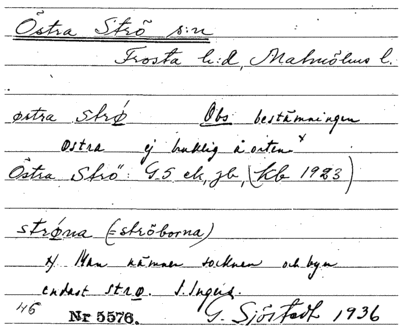 Östra Strö s:n
Frosta h:d, Malmöhus l.
østra strø Obs bestämningen
östra ej bruklig å orten x
Östra Strö: G5 ek, jb, (kb 1923)
strøna (=ströborna)
x/ Man nämner socknen och byn
endast strø. S. Ingers.
46 Nr 5576. G. Sjöstedt 1936